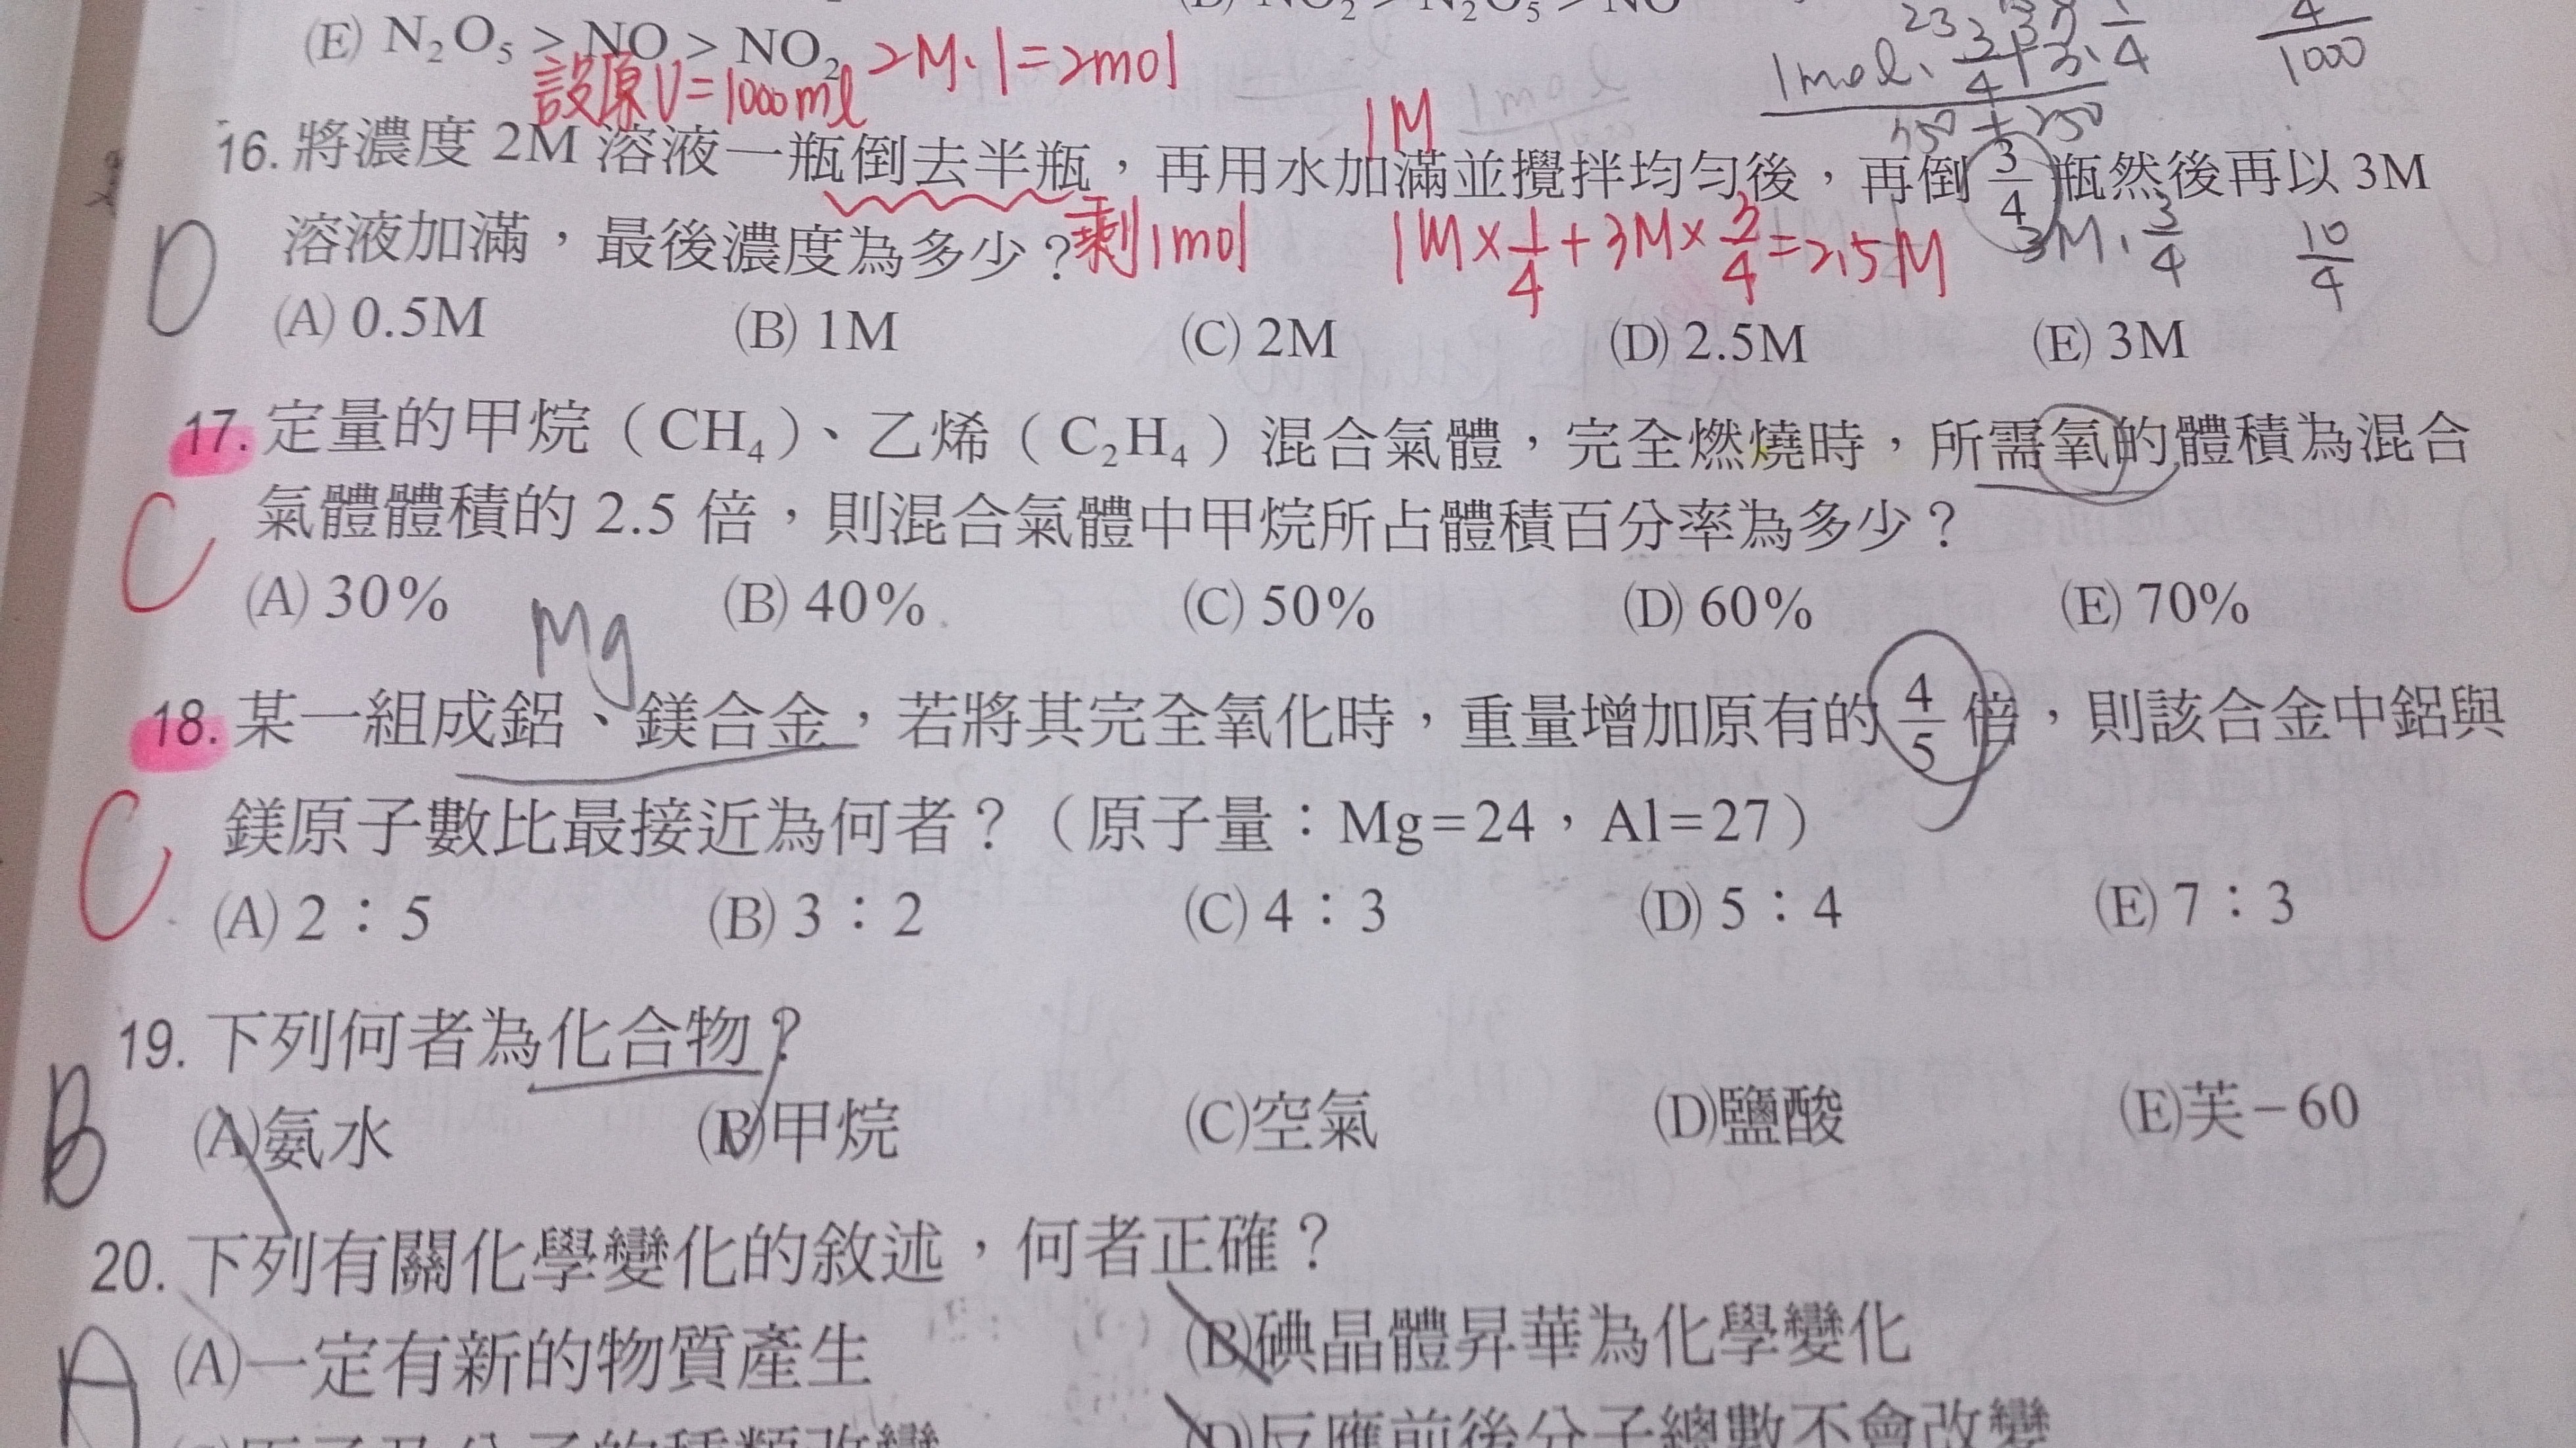 (D) NO₂ > N₂O₅ > NO
(E) N₂O₅ > NO > NO₂
設原V=1000ml 2M、1=2mol
1M
4/1000
16. 將濃度 2M 溶液一瓶倒去半瓶，再用水加滿並攪拌均勻後，再倒 3/4 瓶然後再以 3M
溶液加滿，最後濃度為多少？
剩1mol 1M×1/4+3M×3/4=2.5M
3M、3/4
10/4
D
(A) 0.5M (B) 1M (C) 2M (D) 2.5M (E) 3M
17. 定量的甲烷（CH₄）、乙烯（C₂H₄）混合氣體，完全燃燒時，所需氧的體積為混合
氣體體積的 2.5 倍，則混合氣體中甲烷所占體積百分率為多少？
C
(A) 30% (B) 40% (C) 50% (D) 60% (E) 70%
Mg
18. 某一組成鋁、鎂合金，若將其完全氧化時，重量增加原有的 4/5 倍，則該合金中鋁與
鎂原子數比最接近為何者？（原子量：Mg=24，Al=27）
C
(A) 2：5 (B) 3：2 (C) 4：3 (D) 5：4 (E) 7：3
19. 下列何者為化合物？
B
(A)氨水 (B)甲烷 (C)空氣 (D)鹽酸 (E)芙－60
20. 下列有關化學變化的敘述，何者正確？
A
(A)一定有新的物質產生 (B)碘晶體昇華為化學變化
(D)反應前後分子總數不會改變